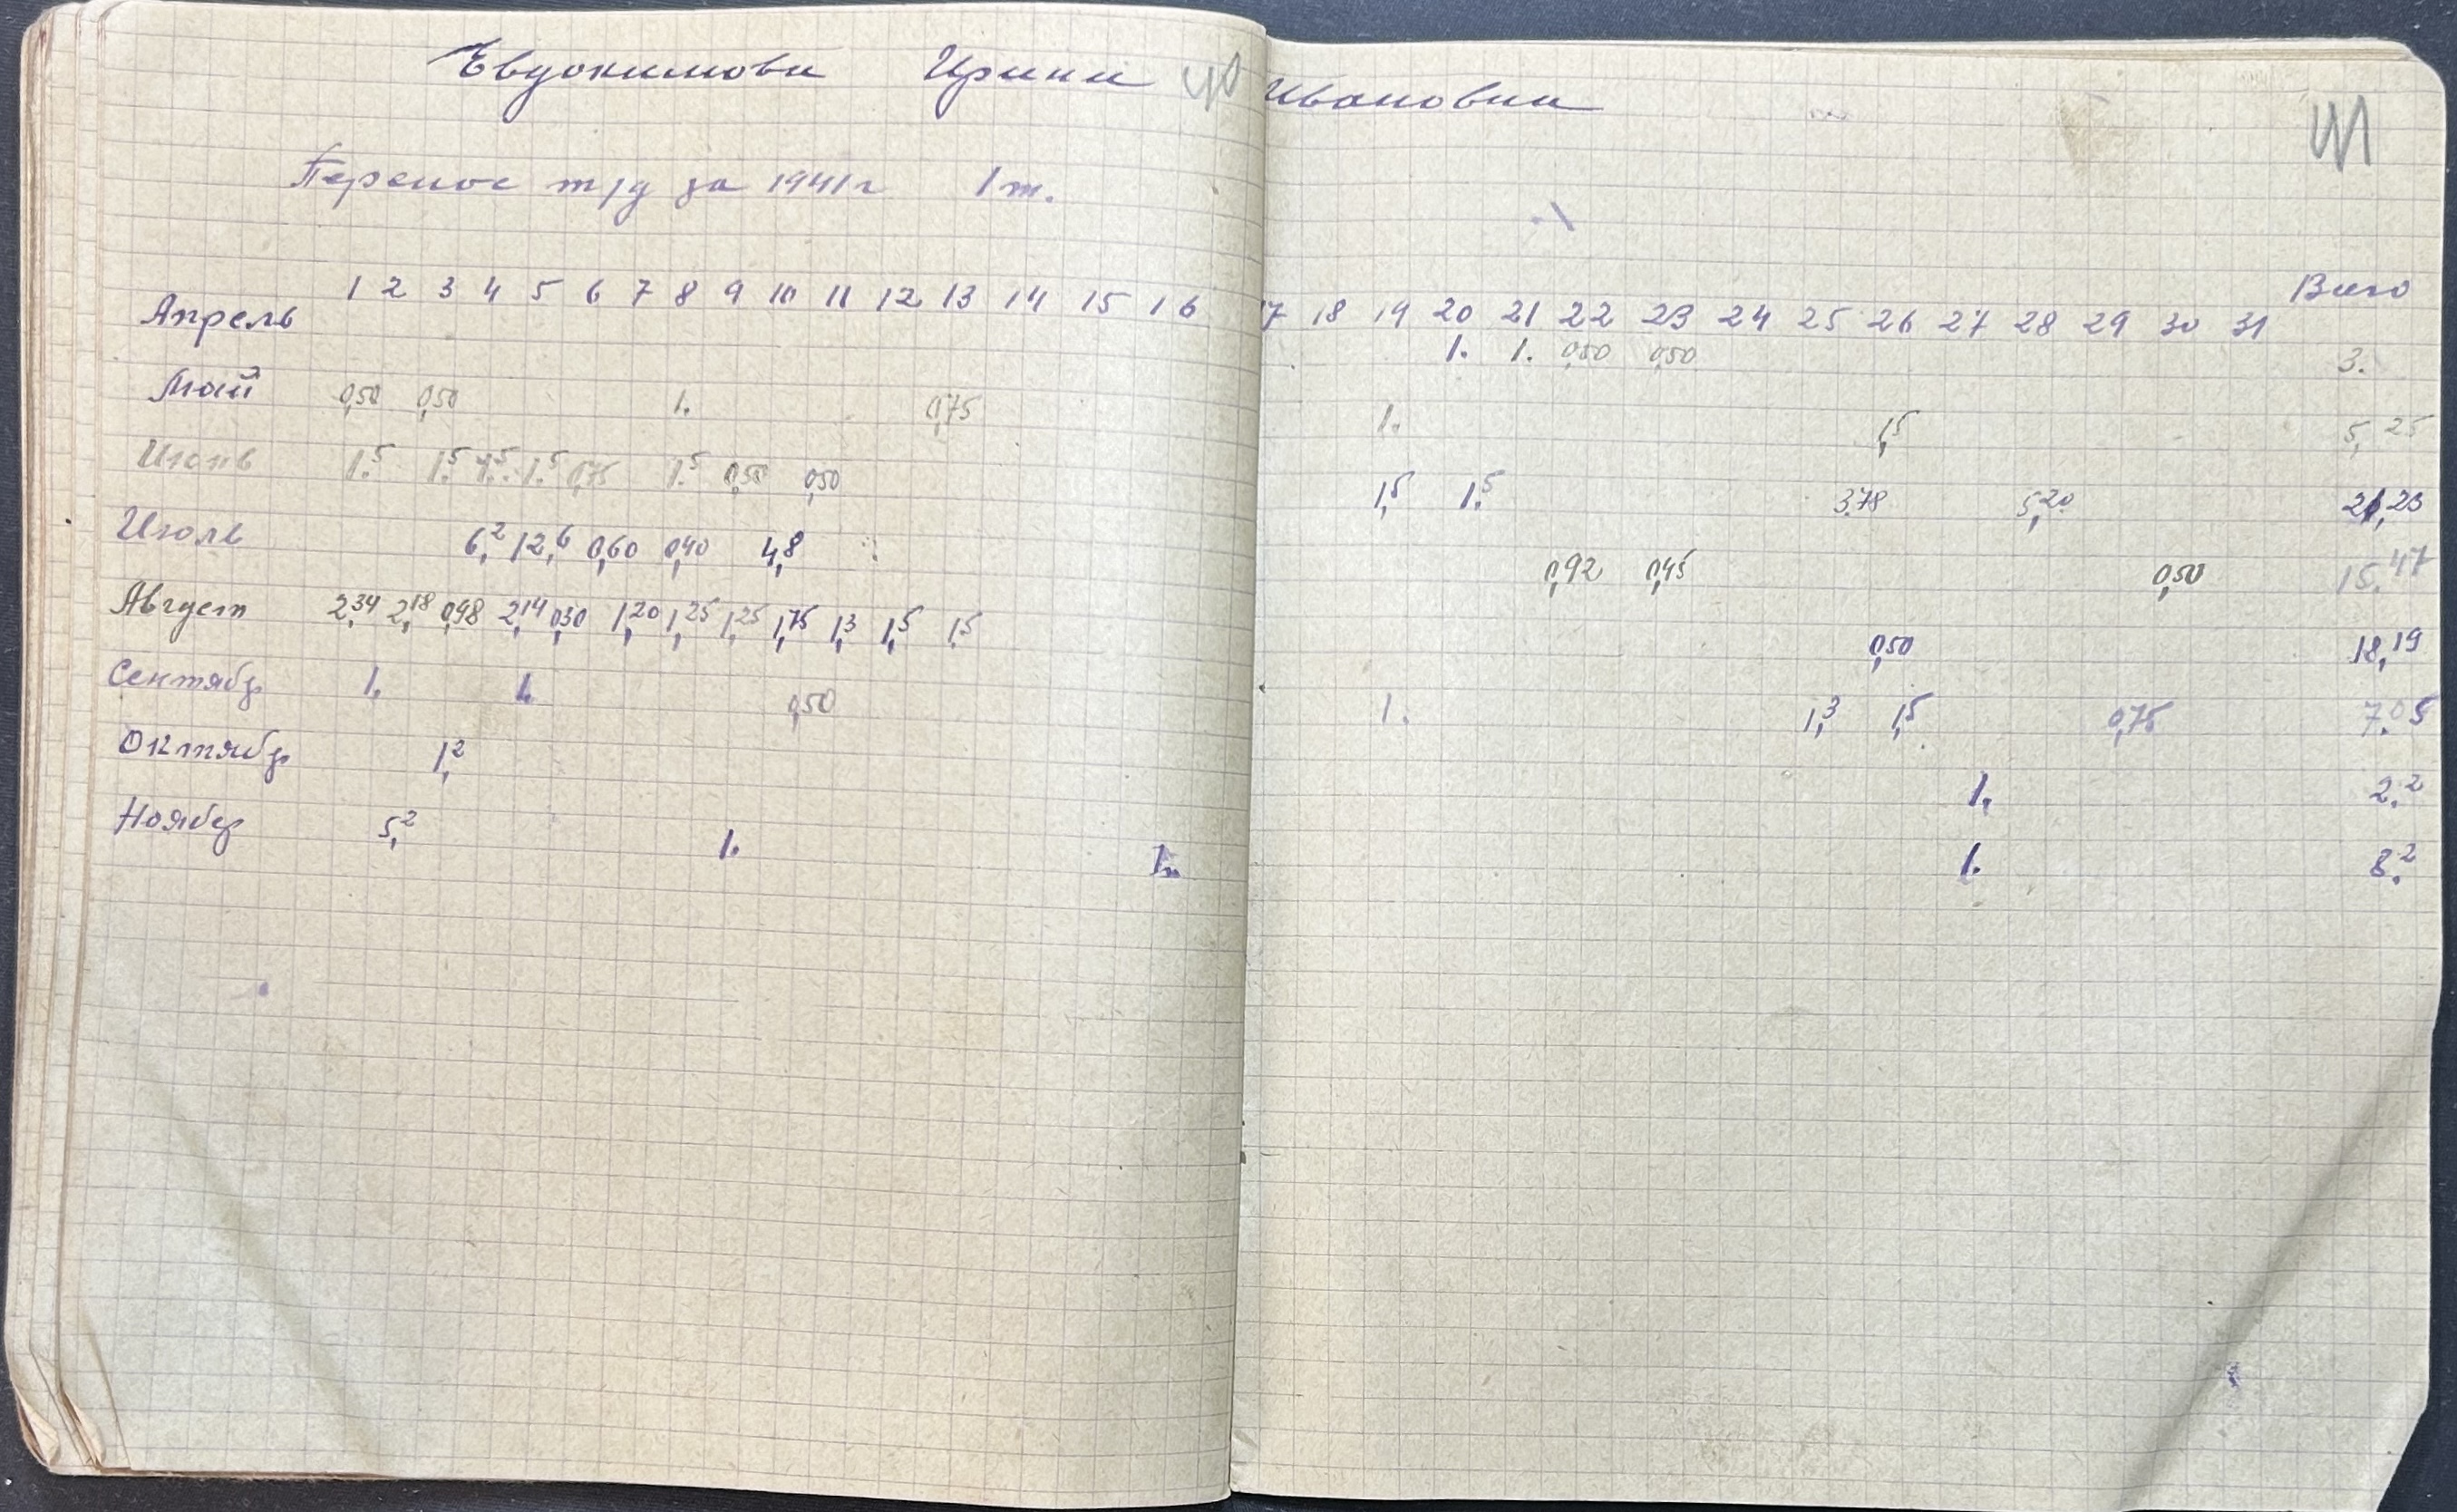 Евдокимова Ирина 40 Ивановна 41
Перенос т/д за 1941г 1 т.
1 2 3 4 5 6 7 8 9 10 11 12 13 14 15 16 17 18 19 20 21 22 23 24 25 26 27 28 29 30 31 Всего
Апрель 1. 1. 0,50 0,50 3.
Май 0,50 0,50 1. 0,75 1. 1,5 5,25
Июнь 1.5 1.5 1.5 1.5 0,75 1.5 0,50 0,50 1,5 1.5 3.78 5,20 21,23
Июль 6,2 12,6 0,60 0,40 4,8 0,92 0,45 0,50 15.47
Август 2,34 2,18 0,98 2,14 0,30 1,20 1,25 1,25 1,75 1,3 1,5 1.5 0,50 18,19
Сентябр 1. 1. 0,50 1. 1,3 1,5 0,75 7.05
Октябр 1,2 1. 2.2
Ноябр 5,2 1. 1. 1. 8.2